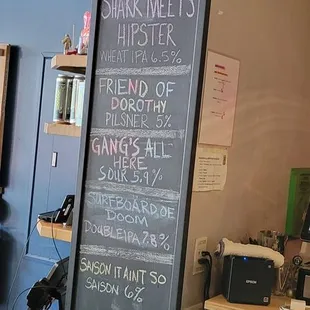 SHARK MEETS
HIPSTER
WHEAT IPA 6.5%
FRIEND OF
DOROTHY
PILSNER 5%
GANG'S ALL
HERE
SOUR 5.9%
SURFBOARD OF
DOOM
DOUBLE IPA 7.8%
SAISON IT AINT SO
SAISON 6%
EPSON